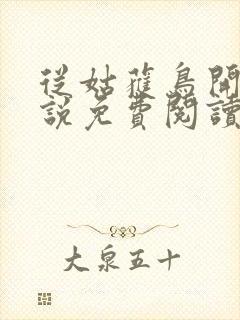 從姑蘿鳥開
說免費閱讀
大泉五十